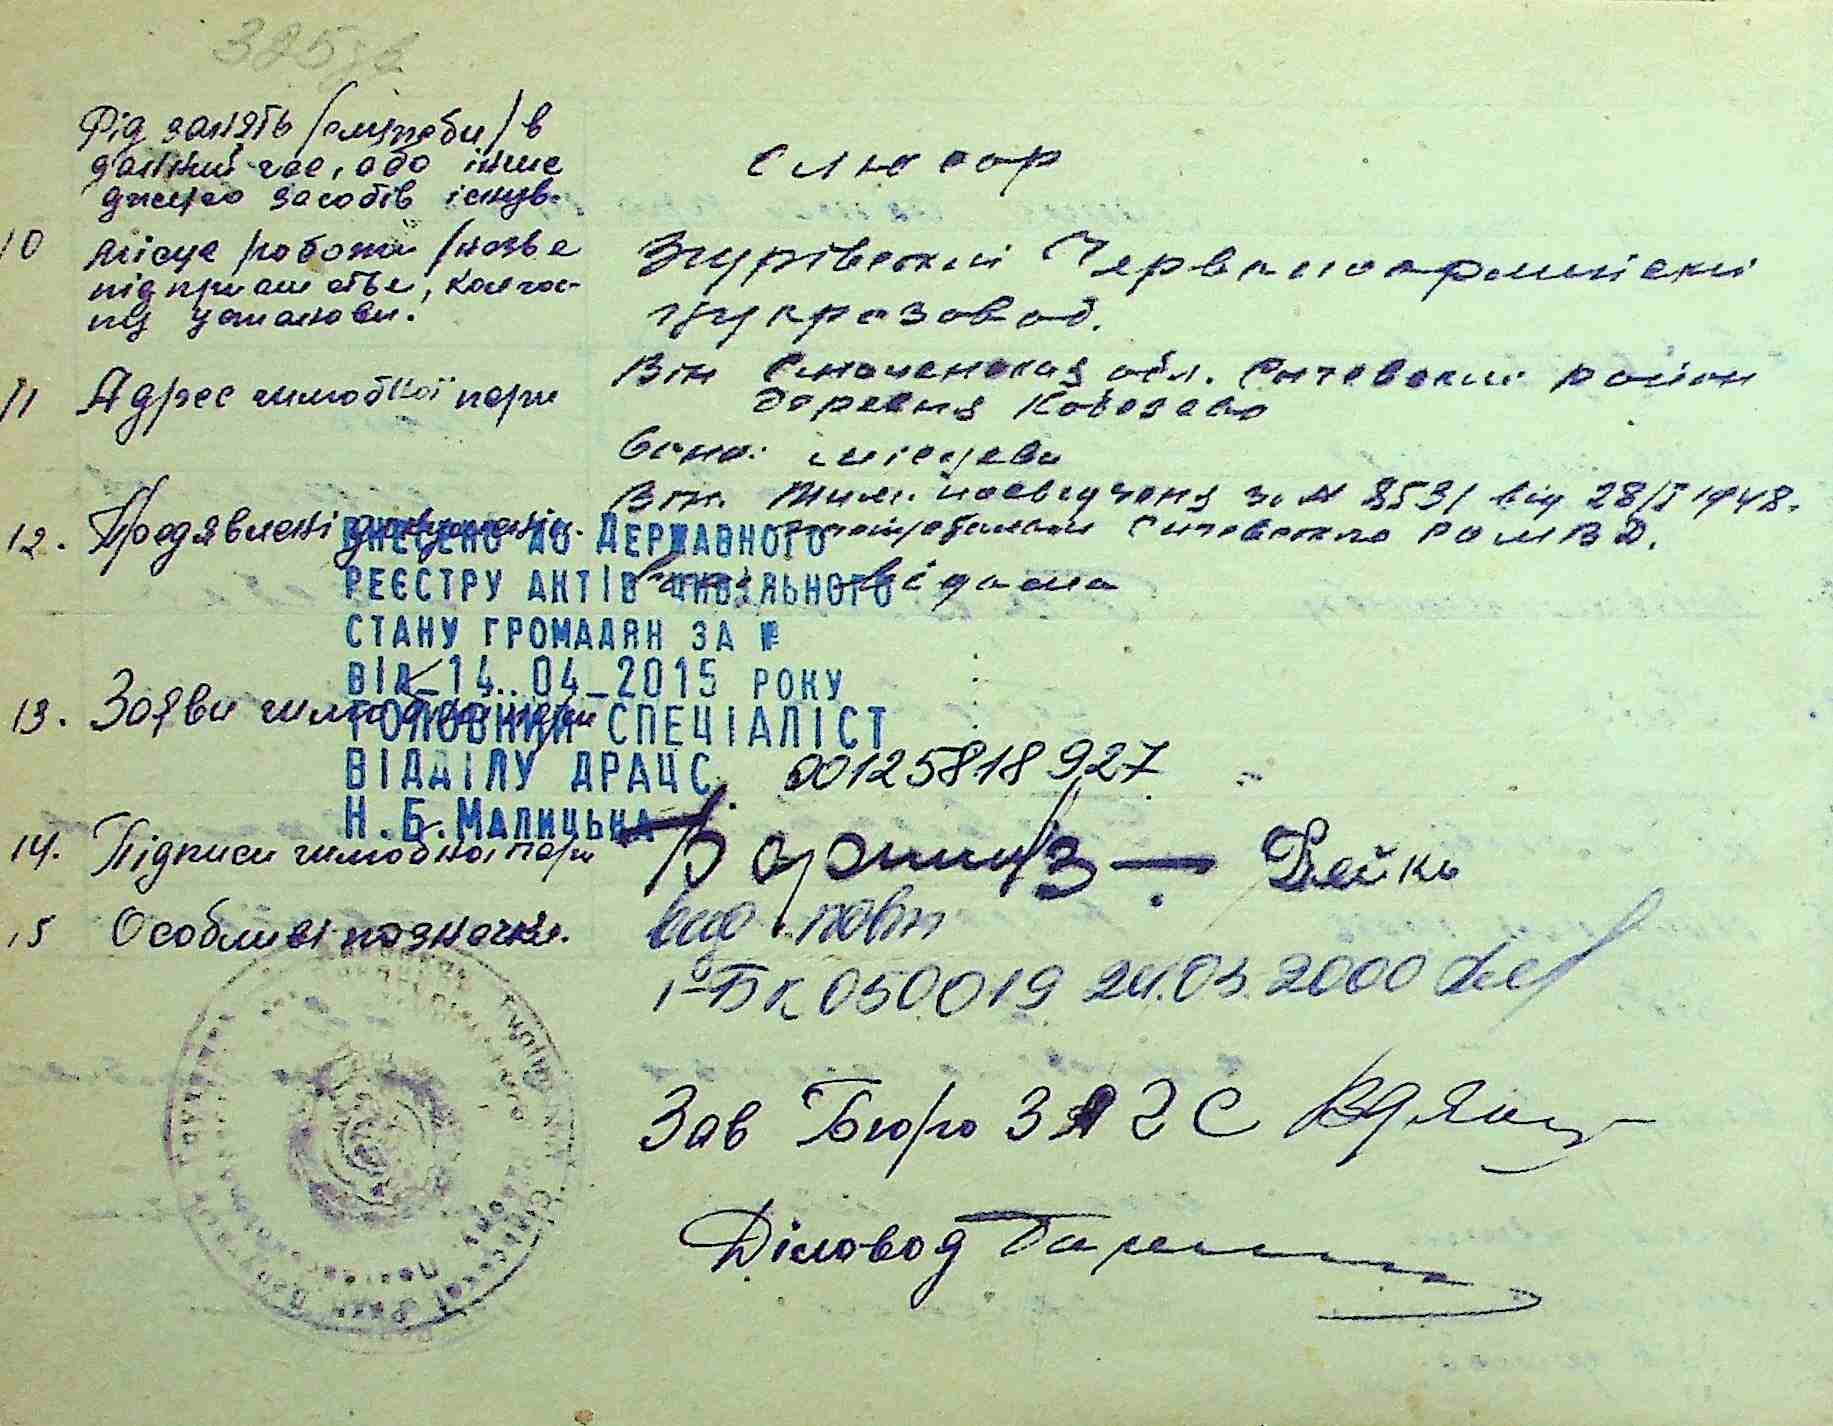 325
Рід занять /служби/ в
данний час, або інше
джерело засобів існув.
Слюсар
10 Місце роботи /назва
підприємства, колгос-
пу установи.
Згурівський Червоноармійский
цукрозавод.
11 Адрес шлюбної пари
Він Смоленская обл. Сычевский район
деревня
Вона: місцева
12. Предявлені документи.
Він. Тим. посвідченя за № 8531 від 28/I 1948.
Сичевского РОМВД.
Вона відома
13. Заяви шлюбної пари
ВНЕСЕНО ДО ДЕРЖАВНОГО
РЕЄСТРУ АКТІВ ЦИВІЛЬНОГО
СТАНУ ГРОМАДЯН ЗА №
ВІД 14. 04 2015 РОКУ
ГОЛОВНИЙ СПЕЦІАЛІСТ
ВІДДІЛУ ДРАЦС
Н.Б.Малицька
00125818927
14. Підписи шлюбної пари
Дейкь
15 Особливі позначки.
вид. повт
І-БК 050019 24.03.2000
Зав Бюро ЗАГС
Діловод